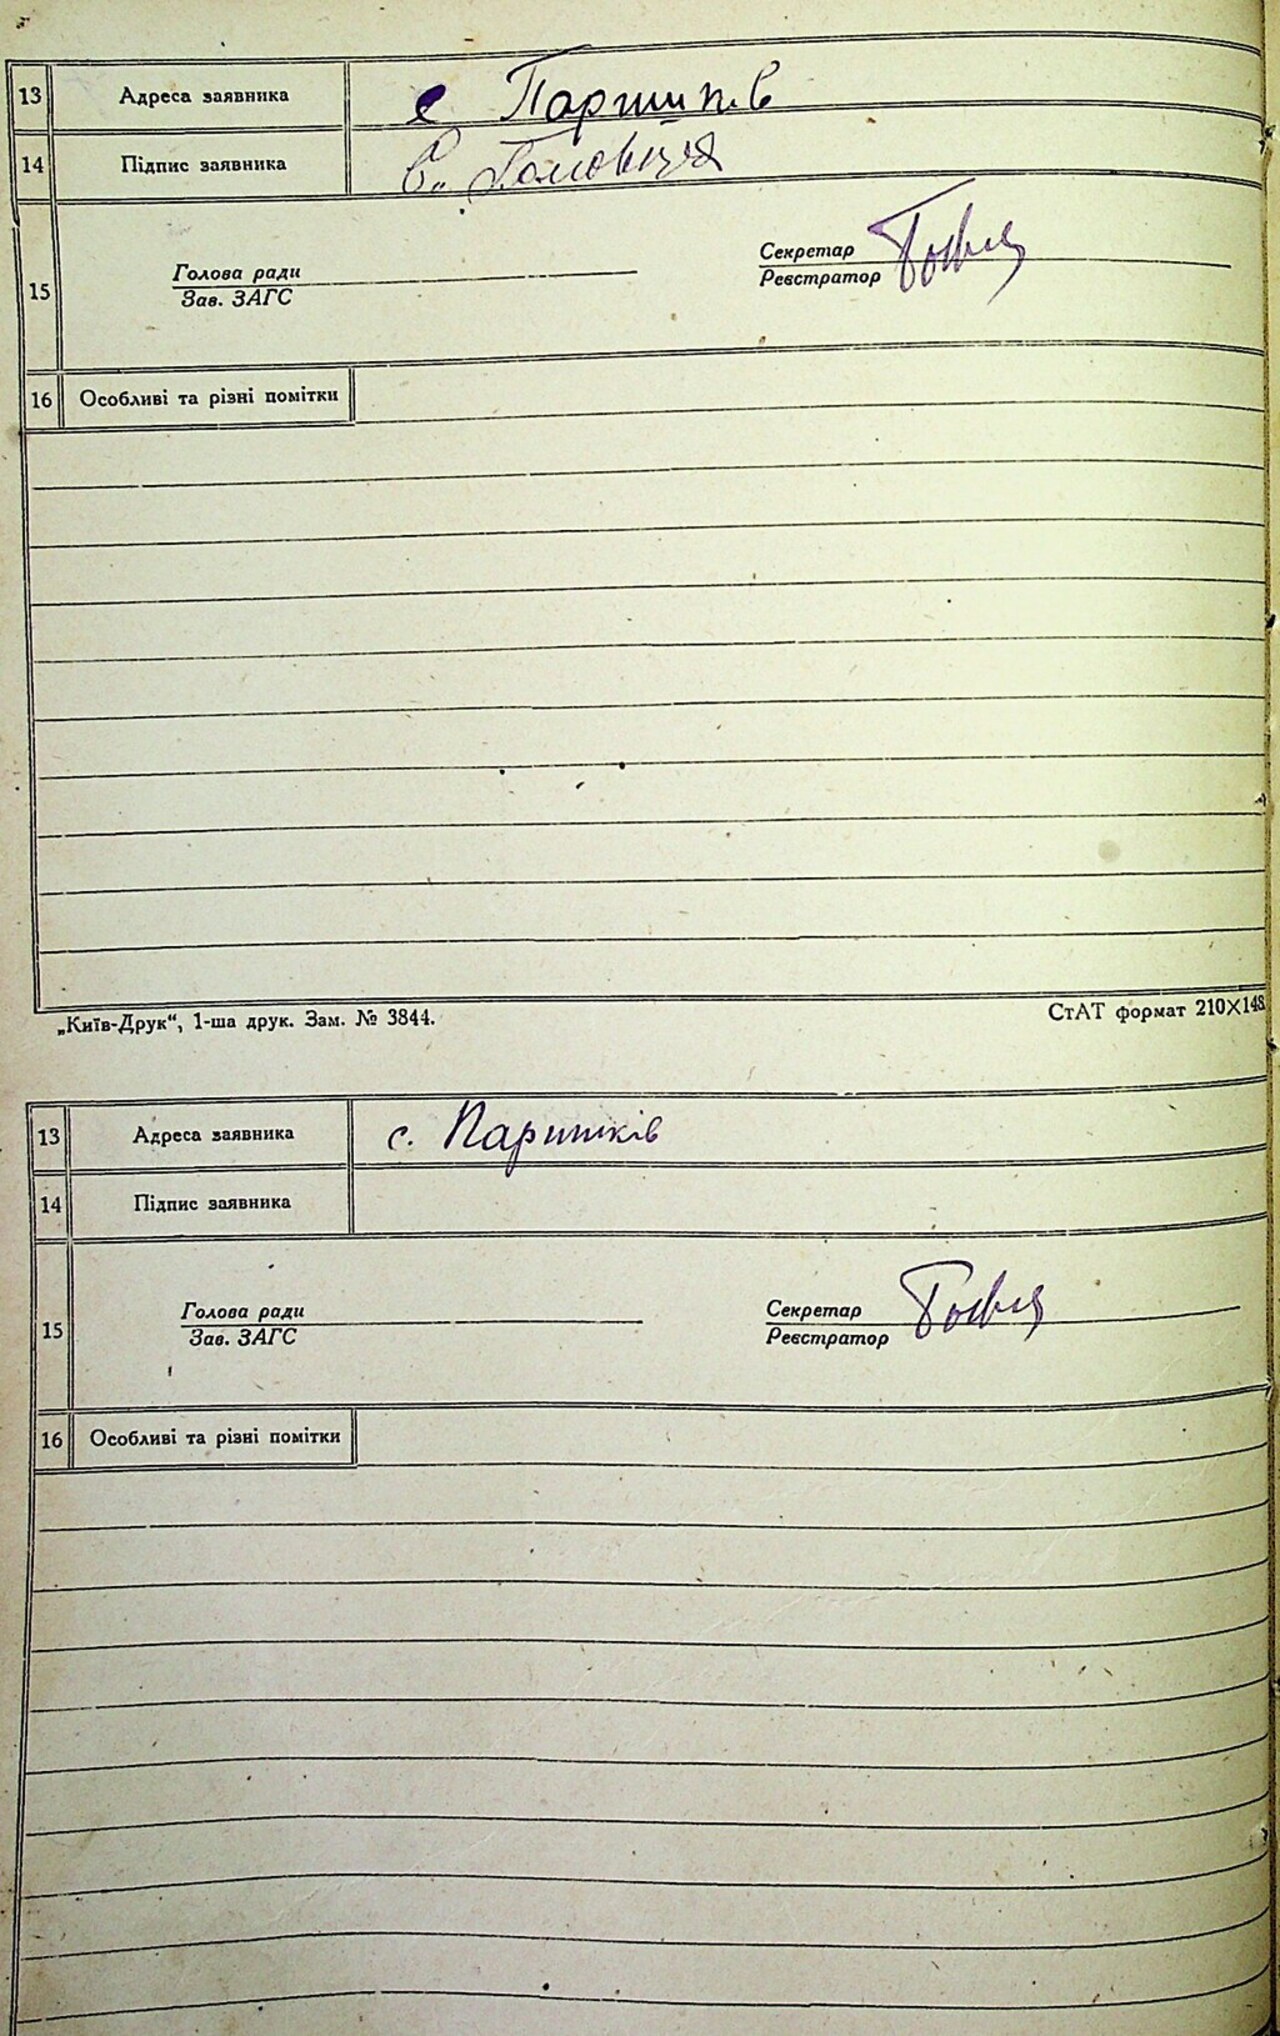 13 Адреса заявника с Паришків
14 Підпис заявника
15 Голова ради Секретар
Зав. ЗАГС Реєстратор
16 Особливі та різні помітки
„Київ-Друк“, 1-ша друк. Зам. № 3844. СтАТ формат 210X148
13 Адреса заявника с. Паришків
14 Підпис заявника
15 Голова ради Секретар
Зав. ЗАГС Реєстратор
16 Особливі та різні помітки